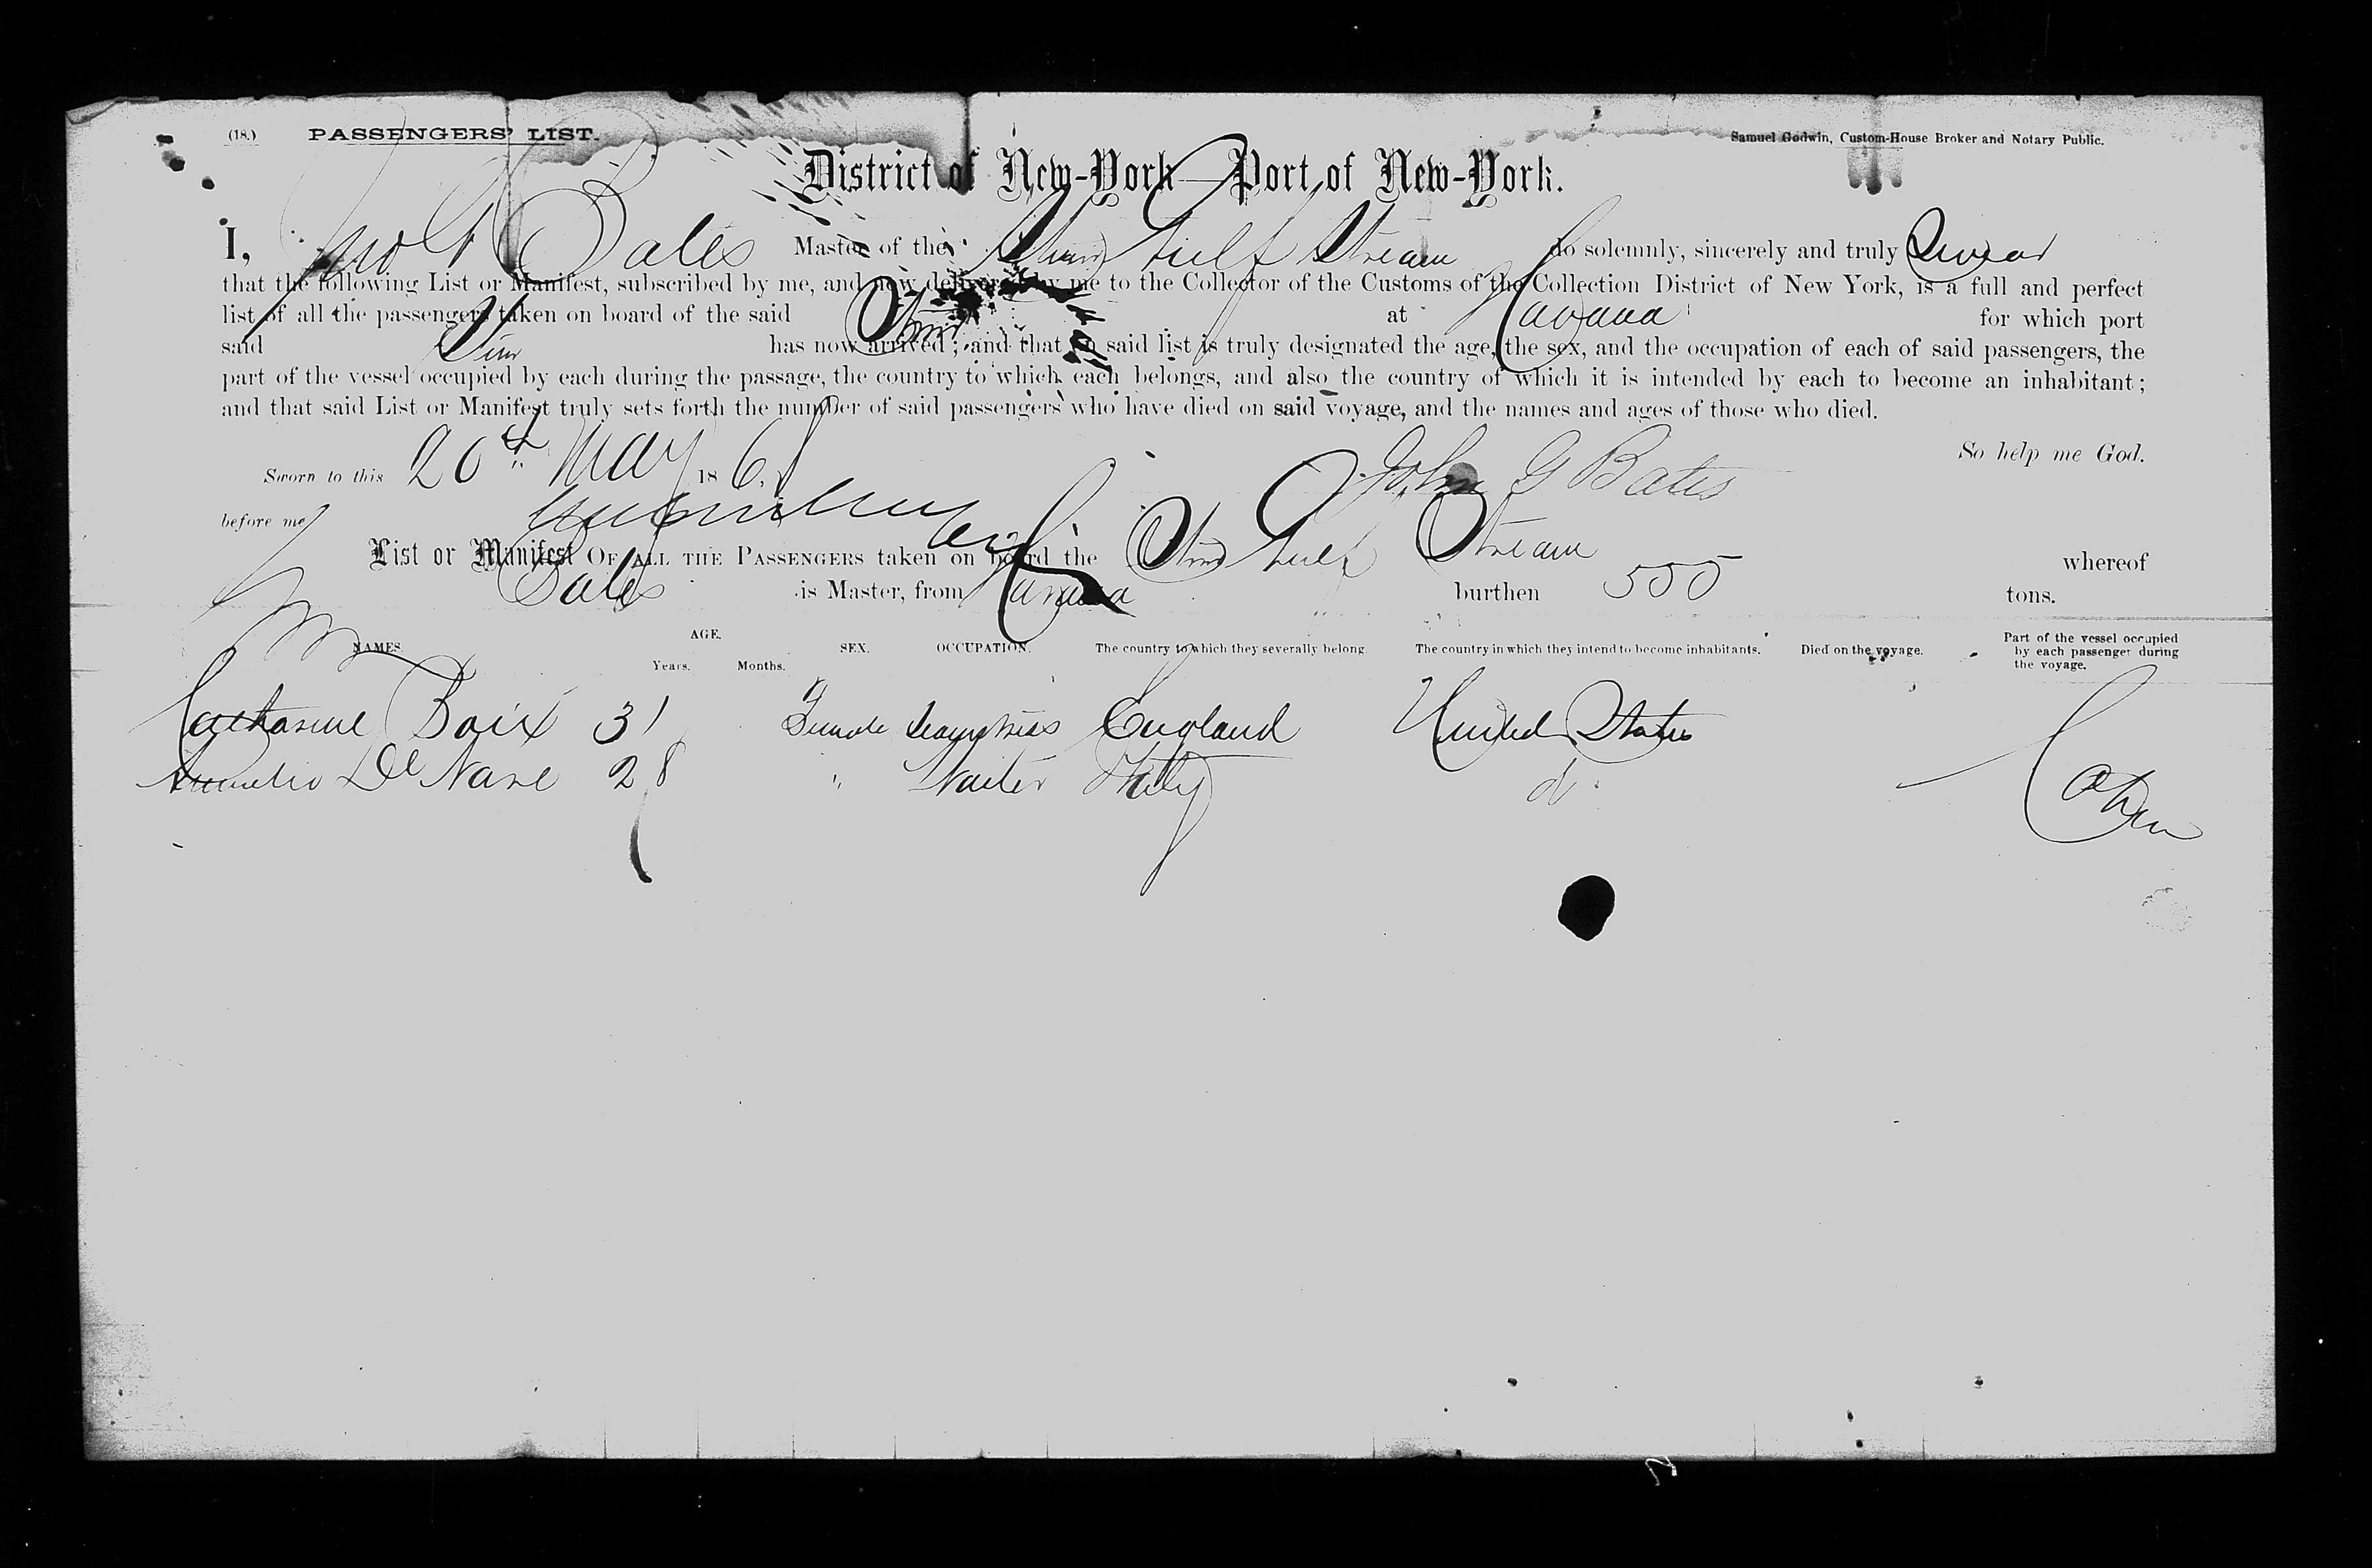 (18.) PASSENGERS' LIST.
Samuel Godwin, Custom-House Broker and Notary Public.
District of New-York Port of New-York.
I, Jno G Bates Master of the Stmr Gulf Stream do solemnly, sincerely and truly Swear
that the following List or Manifest, subscribed by me, and now delivered by me to the Collector of the Customs of the Collection District of New York, is a full and perfect
list of all the passengers taken on board of the said Stmr at Havana for which port
said Stmr has now arrived; and that on said list is truly designated the age, the sex, and the occupation of each of said passengers, the
part of the vessel occupied by each during the passage, the country to which each belongs, and also the country of which it is intended by each to become an inhabitant;
and that said List or Manifest truly sets forth the number of said passengers who have died on said voyage, and the names and ages of those who died.
So help me God.
Sworn to this 20th May 186 John G Bates
before me
List or Manifest OF ALL THE PASSENGERS taken on board the Stmr Gulf Stream whereof
Bates is Master, from Havana burthen 550 tons.
NAMES. AGE. Years. Months. SEX. OCCUPATION. The country to which they severally belong. The country in which they intend to become inhabitants. Died on the voyage. Part of the vessel occupied by each passenger during the voyage.
Catharine Boix 31 Female Seamstress England United States
De Nave 28 " Waiter Italy do Cabin